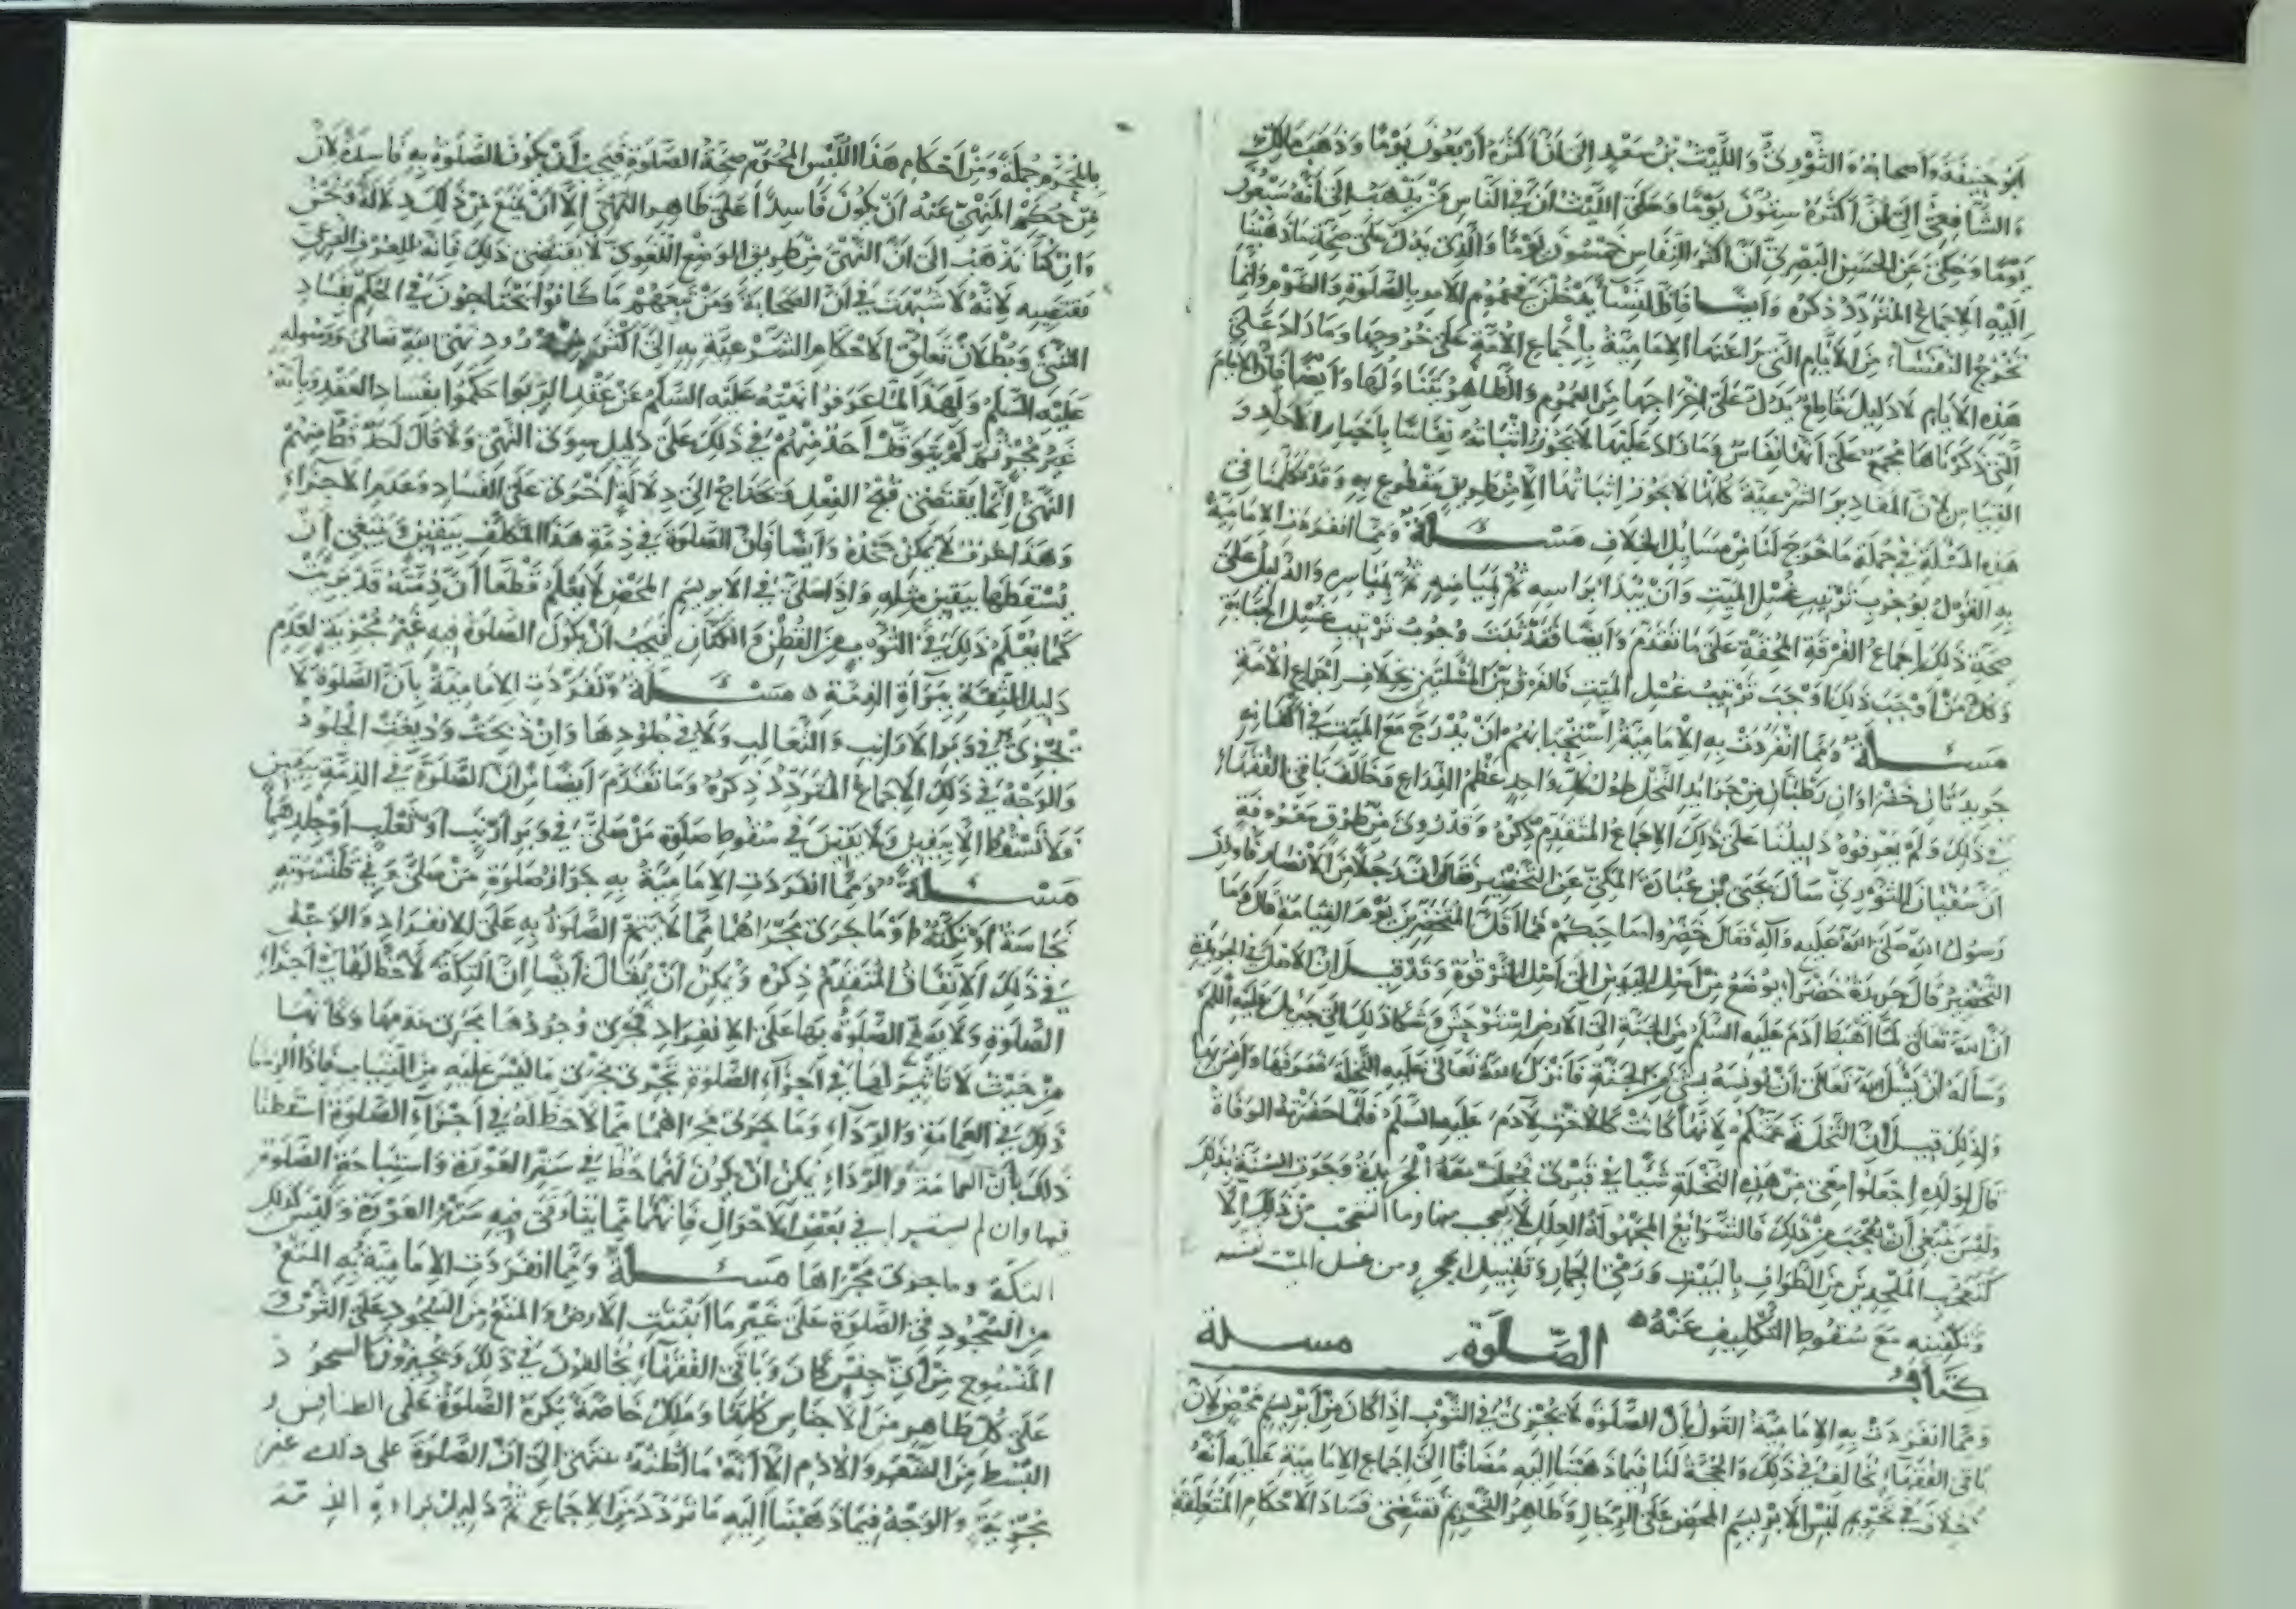 أبو حنيفة وأصحابه والثوري والليث بن سعد إلى أن أكثره أربعون يوما وذهب مالك
والشافعي إلى أن أكثره ستون يوما وحكى الليث أن في الناس من يذهب إلى أنه سبعون
يوما وحكي عن الحسن البصري أن أكثر النفاس خمسون يوما والذي يدل على صحة ما ذهبنا
إليه الإجماع المتردد ذكره وأيضا فإن النساء يدخلن في عموم الأمر بالصلوة والصوم وإنما
تخرج النفساء من الأيام التي راعتها الإمامية بإجماع الأمة على خروجها وما زاد على
هذه الأيام لا دليل قاطع يدل على إخراجها من العموم والظاهر يتناولها وأيضا فإن الأيام
التي ذكرناها مجمع على أنها نفاس وما زاد عليها لا يجوز إثباته نفاسا بأخبار الآحاد و
القياس لأن المقادير الشرعية كلها لا يجوز إثباتها إلا من طريق مقطوع به وقد تكلمنا في
هذه المسئلة في جملة ما خرج لنا من مسايل الخلاف مسئلة ومما انفردت الإمامية
به القول بوجوب ترتيب غسل الميت وأن يبدأ برأسه ثم بميامنه ثم بمياسره والدليل على
صحة ذلك إجماع الفرقة المحقة على ما تقدم وأيضا فقد ثبت وجوب ترتيب غسل الجنابة
وكل من أوجب ذلك أوجب ترتيب غسل الميت فالفرق بين المسئلتين بخلاف إجماع الأمة
مسئلة ومما انفردت به الإمامية استحبابهم أن يدرج مع الميت في أكفانه
جريدتان خضراوان رطبتان من جرائد النخل طول كل واحد عظم الذراع وخالف باقي الفقهاء
في ذلك ولم يعرفوه دليلنا على ذلك الإجماع المتقدم ذكره وقد روي من طرق معروفة
أن سفيان الثوري سأل يحيى بن عبادة المكي عن التخضير فقال إن رجلا من الأنصار
رسول الله صلى الله عليه وآله فقال خضروا صاحبكم فما أقل المتخضرين يوم القيامة قال وما
التخضير قال جريدة خضراء يوضع من أصل اليدين إلى أصل الترقوة وقد قيل إن الأصل في الجريدة
أن الله تعالى لما أهبط آدم عليه السلم من الجنة إلى الأرض استوحش وشكا ذلك إلى جبريل عليه السلم
وسأله أن يسئل الله تعالى أن يونسه بشيء من الجنة فأنزل الله تعالى عليه النخلة فعرفها وأنس بها
ولذلك قيل إن النخلة عمتكم لأنها كانت كالأخت لآدم عليه السلم فلما حضرته الوفاة
قال لولده اجعلوا معي من هذه النخلة شيئا في قبري فجعلت معه الجريدة وجرت السنة بذلك
وليس ينبغي أن يعجب من ذلك فالشرائع المجهولة العلل لا يعجب منها وما التعجب من ذلك إلا
كتعجب الملحدين من الطواف بالبيت ورمي الجمار وتقبيل الحجر ومن غسل الميت نفسه
وتكفينه مع سقوط التكليف عنه
كتاب الصلوة مسئلة
ومما انفردت به الإمامية القول بأن الصلوة لا يجزئ في الثوب إذا كان من أبريسم محض لأن
باقي الفقهاء يخالف في ذلك والحجة لنا فيما ذهبنا إليه مضافا إلى إجماع الإمامية عليه أنه
لا خلاف في تحريم لبس الابريسم المحض على الرجال وظاهر التحريم يقتضي فساد الأحكام المتعلقة
بالمحرم جملة ومن أحكام هذا اللبس المحرم صحة الصلوة فيجب أن يكون الصلوة به فاسدة لأن
من حكم المنهي عنه أن يكون فاسدا على ظاهر النهي إلا أن يمنع من ذلك دلالة ونحن
وإن كنا نذهب إلى أن النهي من طريق الوضع اللغوي لا يقتضي ذلك فإنه للعرف الشرعي
يقتضيه لأنه لا شبهة في أن الصحابة ومن تبعهم ما كانوا يحتاجون في الحكم بفساد
الشيء وبطلان تعلق الأحكام الشرعية به إلى أكثر من ورود نهي الله تعالى ورسوله
عليه السلم ولهذا لما عرفوا نهيه عليه السلم عن عقد الربوا حكموا بفساد العقد وبأنه
غير مجزئ ثم لم يتوقف أحد منهم في ذلك على دليل سوى النهي ولا قال أحد قط منهم
النهي إنما يقتضي قبح الفعل ويحتاج إلى دلالة أخرى على الفساد وعدم الأجزاء
وهذا عرف لا يمكن جحده وأيضا فإن الصلوة في ذمة هذا المكلف بيقين وينبغي أن
يسقطها بيقين مثله وإذا صلى في الابريسم المحض لا يعلم قطعا أن ذمته قد بريت
كما يعلم ذلك في الثوب من القطن والكتان فيجب أن يكون الصلوة فيه غير مجزية لعدم
دليل المتيقنة ببراءة الذمة مسئلة وتفردت الإمامية بأن الصلوة لا
تجزئ في وبر الأرانب والثعالب ولا في جلودها وإن ذبحت ودبغت الجلود
والوجه في ذلك الإجماع المتردد ذكره وما تقدم أيضا من أن الصلوة في الذمة بيقين
فلا تسقط إلا بيقين ولا يقين في سقوط صلوة من صلى في وبر أرنب أو ثعلب أو جلدهما
مسئلة ومما انفردت الإمامية به جواز صلوة من صلى وفي قلنسوته
نجاسة أو تكته أو ما جرى مجراهما مما لا يتم الصلوة به على الانفراد والوجه
في ذلك الاتفاق المتقدم ذكره ويمكن أن يقال أيضا إن التكة لا حظ لها في أجزاء
الصلوة ولا يتم الصلوة بها على الانفراد فجرى وجودها مجرى عدمها وكأنها
من حيث لا تأثير لها في أجزاء الصلوة تجري مجرى ما ليس عليه من الثياب فإذا ألزمنا
ذلك في العمامة والرداء وما جرى مجراهما مما لا حظ له في أجزاء الصلوة أسقطنا
ذلك بأن العمامة والرداء يمكن أن يكون لهما حظ في ستر العورة واستباحة الصلوة
فيهما وإن لم يستترا في بعض الأحوال فإنهما مما يتأتى فيه ستر العورة وليس كذلك
التكة وما جرى مجراها مسئلة ومما انفردت الإمامية به المنع
من السجود في الصلوة على غير ما أنبتت الأرض والمنع من السجود على الثوب
المنسوج من أي جنس كان وباقي الفقهاء يخالفون في ذلك ويجيزون السجود
على كل طاهر من الأجناس كلها ومالك خاصة يكره الصلوة على الطنافس و
البسط من الشعر والأدم إلا أنه ما أظنه ينتهي إلى أن الصلوة على ذلك غير
مجزية والوجه فيما ذهبنا إليه ما تردد من الإجماع ثم دليل براءة الذمة